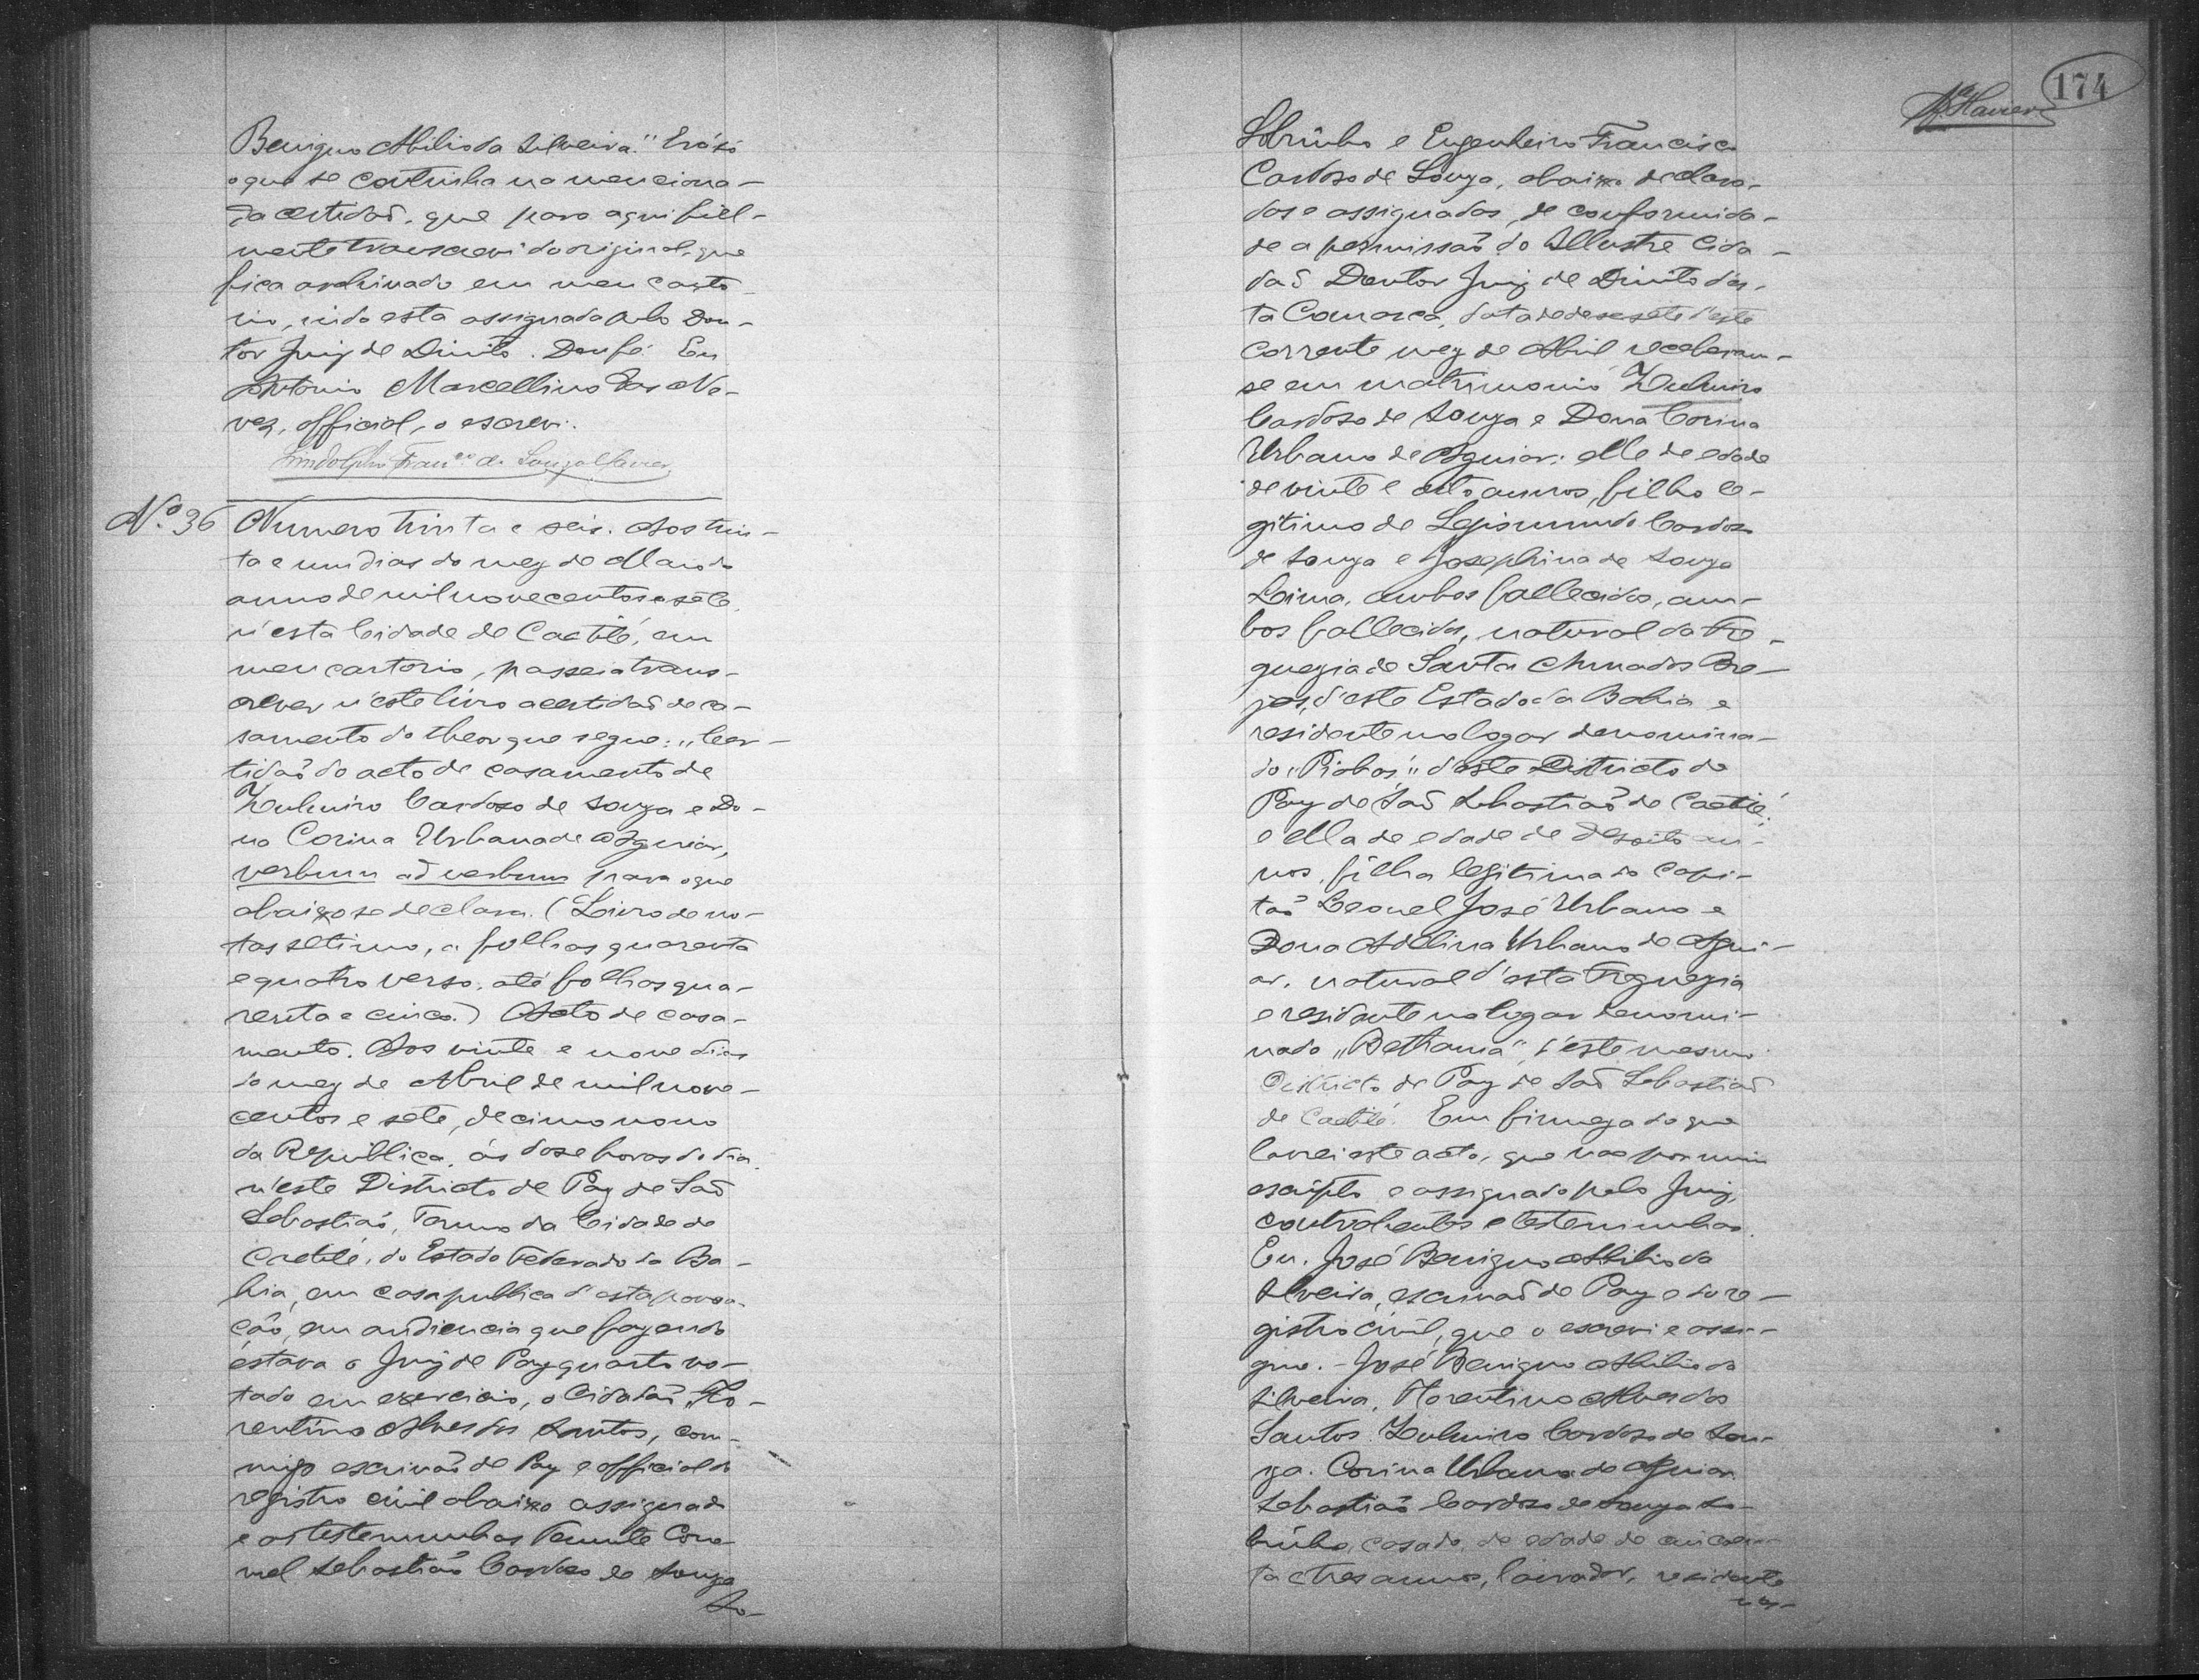 Benigno Abilio da Silveira." Era só
o que se continha na menciona-
da certidão, que para aqui fiel-
mente transcrevi do original, que
fica archivado em meu carto-
rio, indo esta assignada pelo Dou-
tor Juiz de Direito. Dou fé. Eu
Antonio Marcellino das Ne-
ves, official, o escrevi.
Lindolpho Fran.co de Souza Xavier
N.o 36 Numero trinta e seis. Aos trin-
ta e um dias do mez de Maio do
anno de mil novecentos e sete,
n'esta Cidade de Caetité, em
meu cartorio, passei a trans-
crever n'este livro a certidão de ca-
samento do theor que segue: "Cer-
tidão do acto de casamento de
Zulmiro Cardoso de Souza e Do-
na Corina Urbana de Aguiar,
verbum ad verbum para o que
abaixo se declara. (Livro de no-
tas setimo, a folhas quarenta
e quatro verso, até folhas qua-
renta e cinco.) Acto de casa-
mento. Aos vinte e nove dias
do mez de Abril de mil nove-
centos e sete, decimo nono
da Republica, ás dose horas do dia,
n'este Districto de Paz de São
Sebastião, Termo da Cidade de
Caetité, do Estado Federado da Ba-
hia, em casa publica d'esta povoa-
ção, em audiencia que fazendo
estava o Juiz de Paz quarto vo-
tado em exercicio, o Cidadão Flo-
rentino Alves dos Santos, com-
migo escrivão de Paz e official do
registro civil abaixo assignado
e as testemunhas Tenente Coro-
nel Sebastião Cardoso de Souza
So-
174
Xavier
Sobrinho e Engenheiro Francisco
Cardoso de Souza, abaixo declara-
dos e assignados, de conformida-
de a permissão do Illustre Cida-
dão Doutor Juiz de Direito des-
ta Comarca, datada de desesete d'este
corrente mez de Abril receberam-
se em matrimonio Zulmiro
Cardoso de Souza e Dona Corina
Urbana de Aguiar: elle de edade
de vinte e oito annos, filho le-
gitimo de Segismundo Cardoso
de Souza e Josephina de Souza
Lima, ambos fallecidos, am-
bos fallecidos, natural da Fre-
guezia de Santa Anna dos Bre-
jos, d'este Estado da Bahia e
residente no logar denomina-
do d'este Districto de
Paz de São Sebastião de Caetité;
e ella de edade de desoito an-
nos, filha legitima do Capi-
tão Leonel José Urbano e
Dona Adelina Urbana de Agui-
ar, natural d'esta Freguezia
e residente no logar denomi-
nado "Bethania", d'este mesmo
Districto de Paz de São Sebastião
de Caetité. Em firmeza do que
lavrei este acto, que vae por mim
escripto e assignado pelo Juiz,
contrahentes e testemunhas.
Eu, José Benigno Abilio da
Silveira, escrivão de Paz e do re-
gistro civil, que o escrevi e assi-
gno. - José Benigno Abilio da
Silveira, Florentino Alves dos
Santos. Zulmiro Cardoso de Sou-
za. Corina Urbana de Aguiar.
Sebastião Cardoso de Souza So-
brinho, casado, de edade de cincoen-
ta e tres annos, lavrador, residente